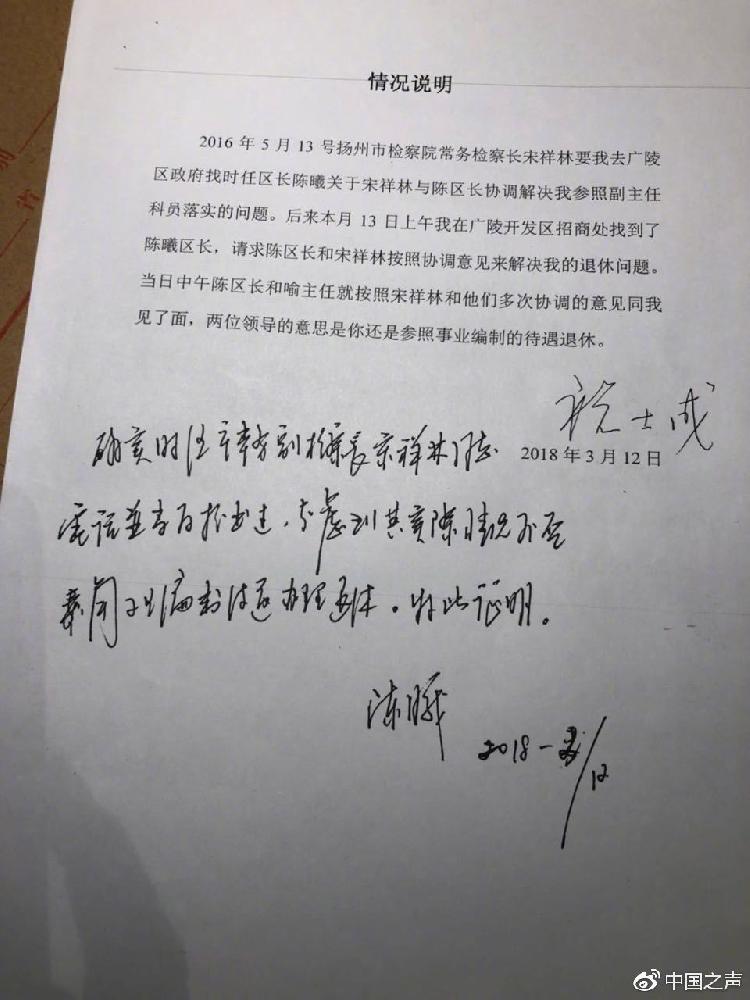 情况说明
2016 年 5 月 13 号扬州市检察院常务检察长宋祥林要我去广陵
区政府找时任区长陈曦关于宋祥林与陈区长协调解决我参照副主任
科员落实的问题。后来本月 13 日上午我在广陵开发区招商处找到了
陈曦区长，请求陈区长和宋祥林按照协调意见来解决我的退休问题。
当日中午陈区长和喻主任就按照宋祥林和他们多次协调的意见同我
见了面，两位领导的意思是你还是参照事业编制的待遇退休。
士成
2018 年 3 月 12 日
确实时任 检察长宋祥林同志
电话 ，考虑到其实际情况
办理退休。特此证明。
陈曦
2018-3/12
中国之声